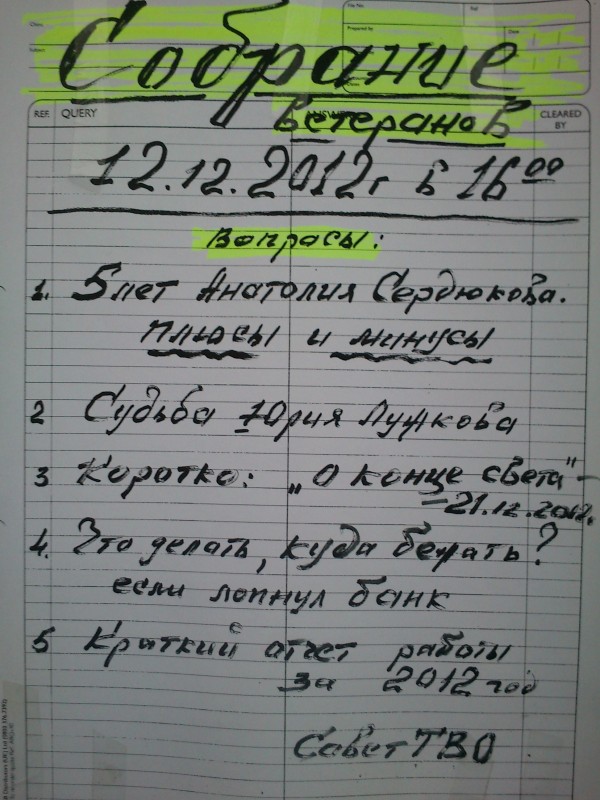 Собрание
REF.
QUERY
CLEARED BY
ветеранов
12.12.2012г в 16 00
Вопросы:
1. 5 лет Анатолия Сердюкова.
плюсы и минусы
2 Судьба Юрия Лужкова
3 Коротко: „О конце света" –
21.12.2012.
4. Что делать, куда бежать?
если лопнул банк
5 Краткий отчет работы
за 2012 год
Совет ТВО